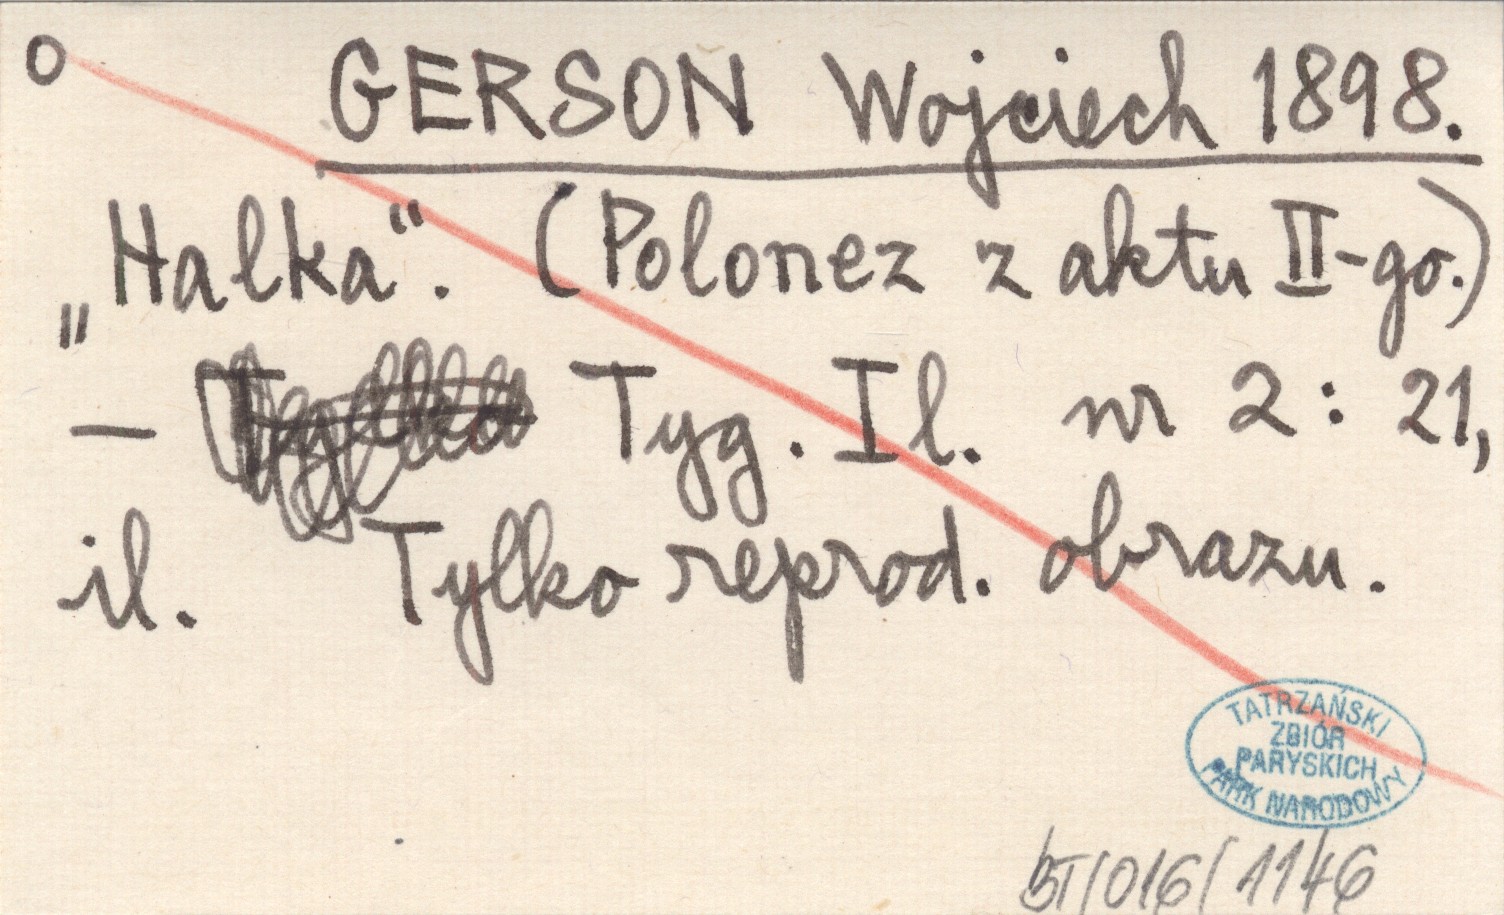 o GERSON Wojciech 1898.
„Halka“. (Polonez z aktu II-go.)
— Tyg. Il. nr 2 : 21,
il. Tylko reprod. obrazu.
TATRZAŃSKI
ZBIÓR
PARYSKICH
PARK NARODOWY
BT/016/1146